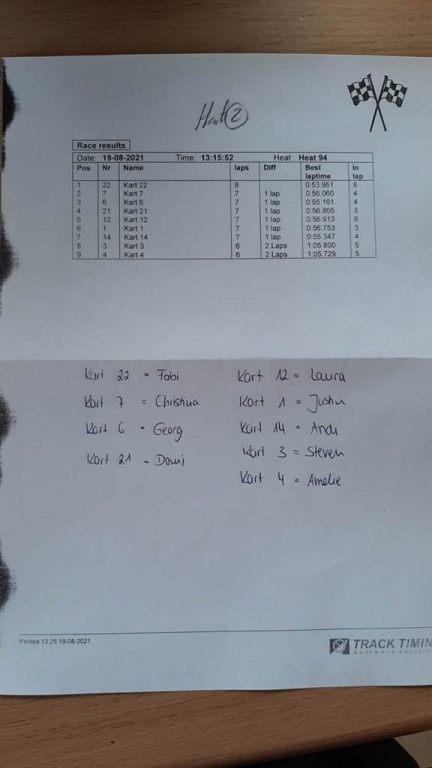 Heat ②
Race results
Date: 19-08-2021 Time: 13:15:52 Heat: Heat 94
Pos Nr Name laps Diff Best laptime In lap
1 22 Kart 22 8 0:53.951 8
2 7 Kart 7 7 1 lap 0:56.060 4
3 6 Kart 6 7 1 lap 0:55.161 4
4 21 Kart 21 7 1 lap 0:56.805 3
5 12 Kart 12 7 1 lap 0:56.913 6
6 1 Kart 1 7 1 lap 0:56.753 3
7 14 Kart 14 7 1 lap 0:55.347 4
8 3 Kart 3 6 2 Laps 1:05.800 5
9 4 Kart 4 6 2 Laps 1:05.729 5
Kart 22 = Fabi
Kart 7 = Christina
Kart 6 - Georg
Kart 21 - Domi
Kart 12 = Laura
Kart 1 = Justin
Kart 14 = Andi
Kart 3 = Steven
Kart 4 = Amelie
Printed 13:25 19-08-2021
TRACK TIMIN
Software Solution